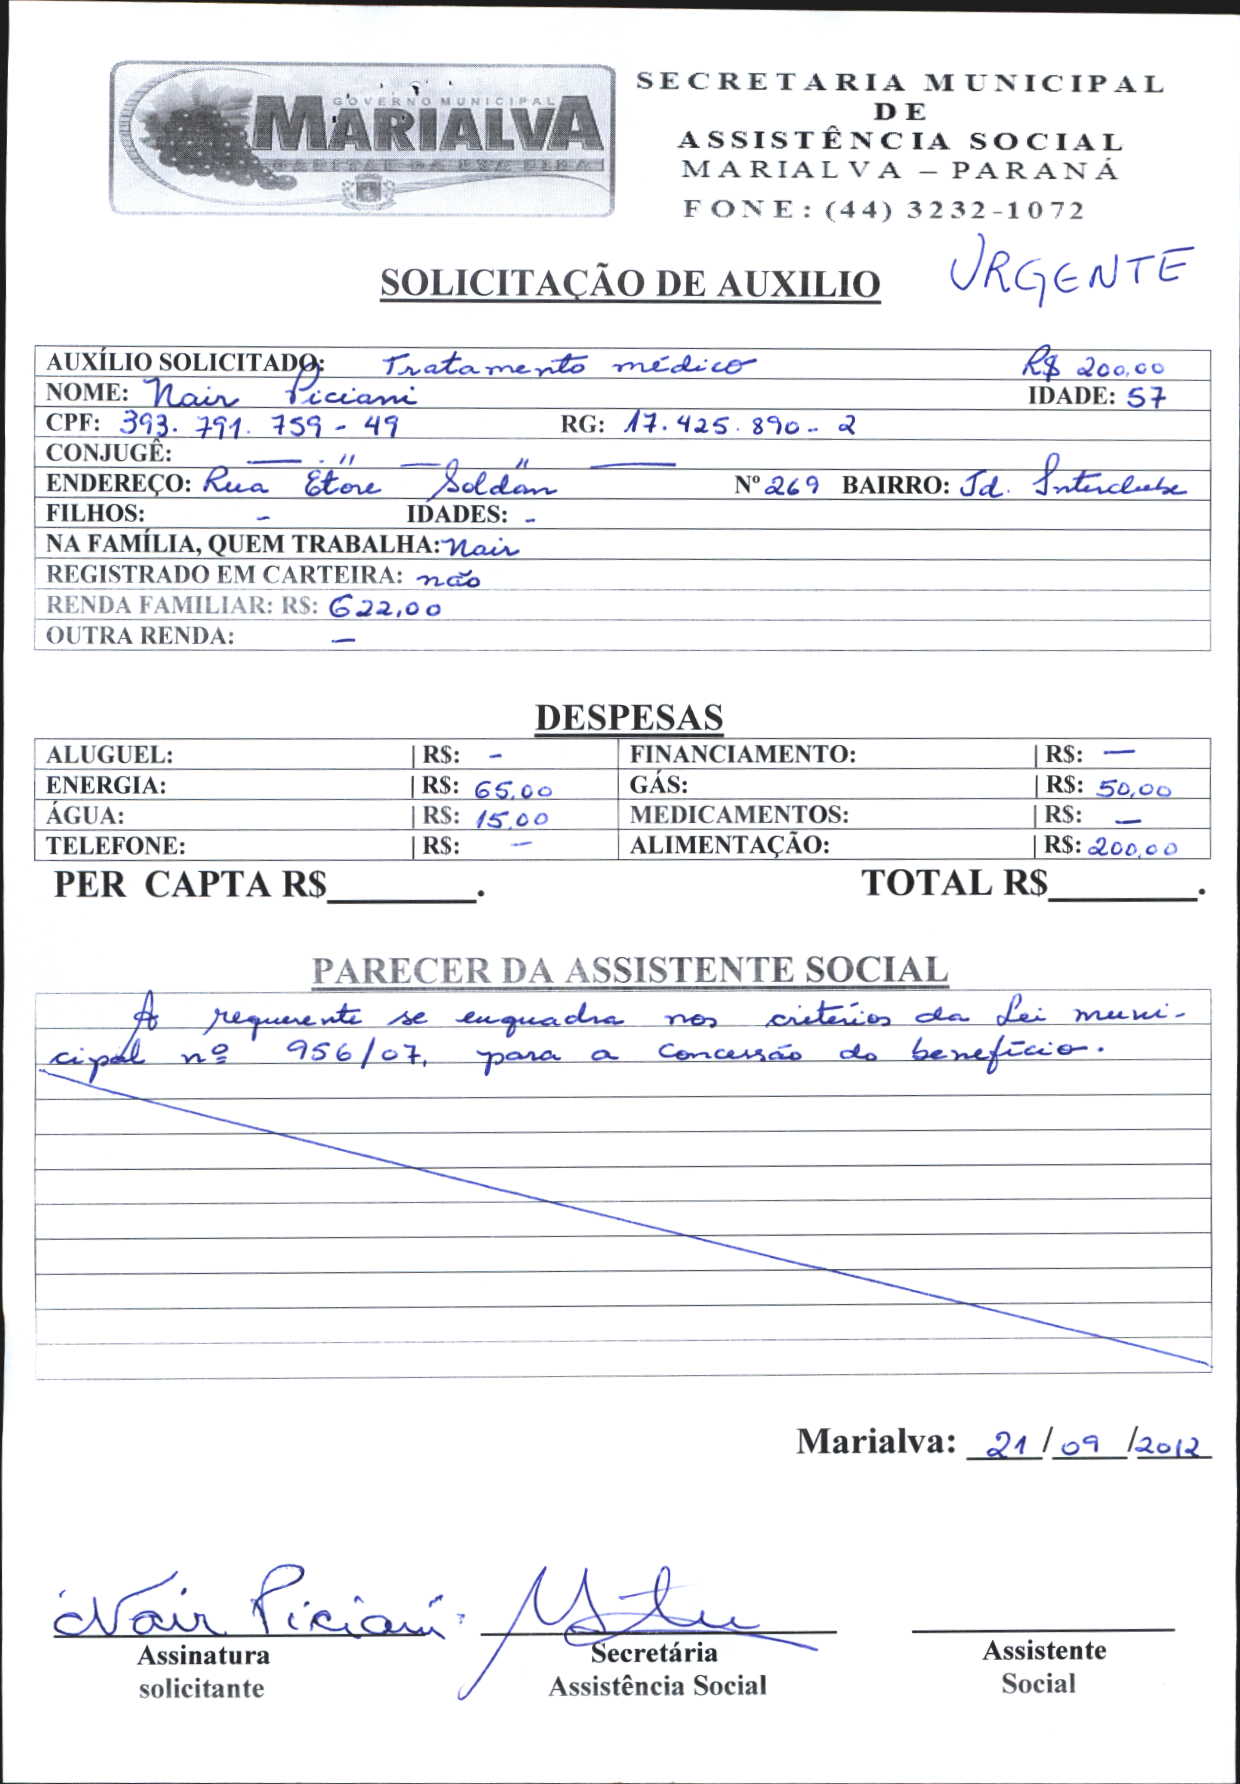 GOVERNO MUNICIPAL
MARIALVA
CAPITAL DA UVA FINA
SECRETARIA MUNICIPAL
DE
ASSISTÊNCIA SOCIAL
MARIALVA – PARANÁ
FONE: (44) 3232-1072
SOLICITAÇÃO DE AUXILIO URGENTE
AUXÍLIO SOLICITADO: Tratamento médico R$ 200,00
NOME: Nair Piciani IDADE: 57
CPF: 393.791.759-49 RG: 17.425.890-2
CONJUGÊ: — " — " —
ENDEREÇO: Rua Etore Soldan Nº 269 BAIRRO: Jd. Interclube
FILHOS: - IDADES: -
NA FAMÍLIA, QUEM TRABALHA: Nair
REGISTRADO EM CARTEIRA: não
RENDA FAMILIAR: R$: 622,00
OUTRA RENDA: —
DESPESAS
ALUGUEL: | R$: - FINANCIAMENTO: | R$: —
ENERGIA: | R$: 65,00 GÁS: | R$: 50,00
ÁGUA: | R$: 15,00 MEDICAMENTOS: | R$: —
TELEFONE: | R$: - ALIMENTAÇÃO: | R$: 200,00
PER CAPTA R$________. TOTAL R$________.
PARECER DA ASSISTENTE SOCIAL
A requerente se enquadra nos critérios da Lei muni-
cipal nº 956/07, para a concessão do benefício.
Marialva: 21/09/2012
Nair Piciani
Assinatura Secretária Assistente
solicitante Assistência Social Social